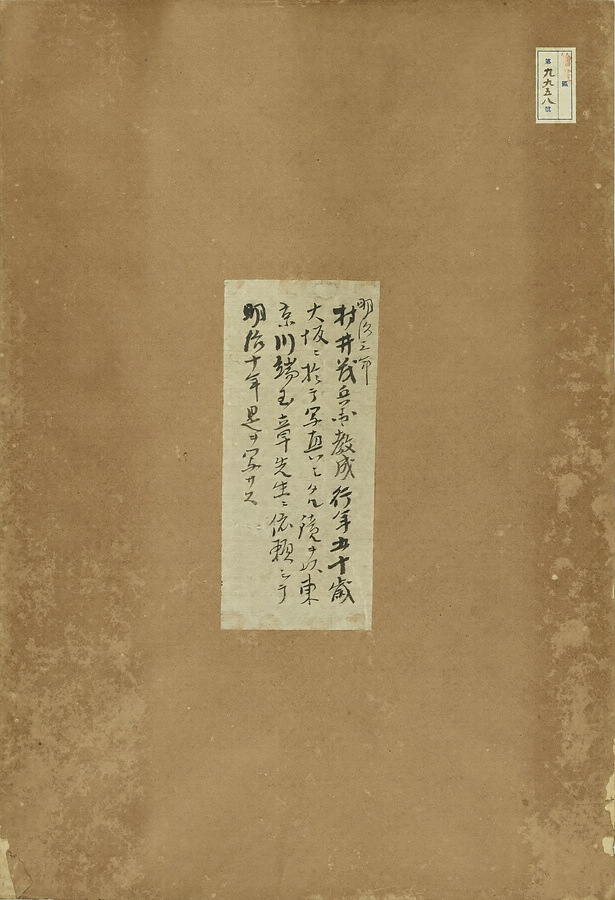 第九九五八號
明治三年
村井茂兵衛教成行年五十歳
大坂ニ於テ写真鏡ヲ以東
京川端玉章先生ニ依頼シテ
明治十年是ヲ写サス